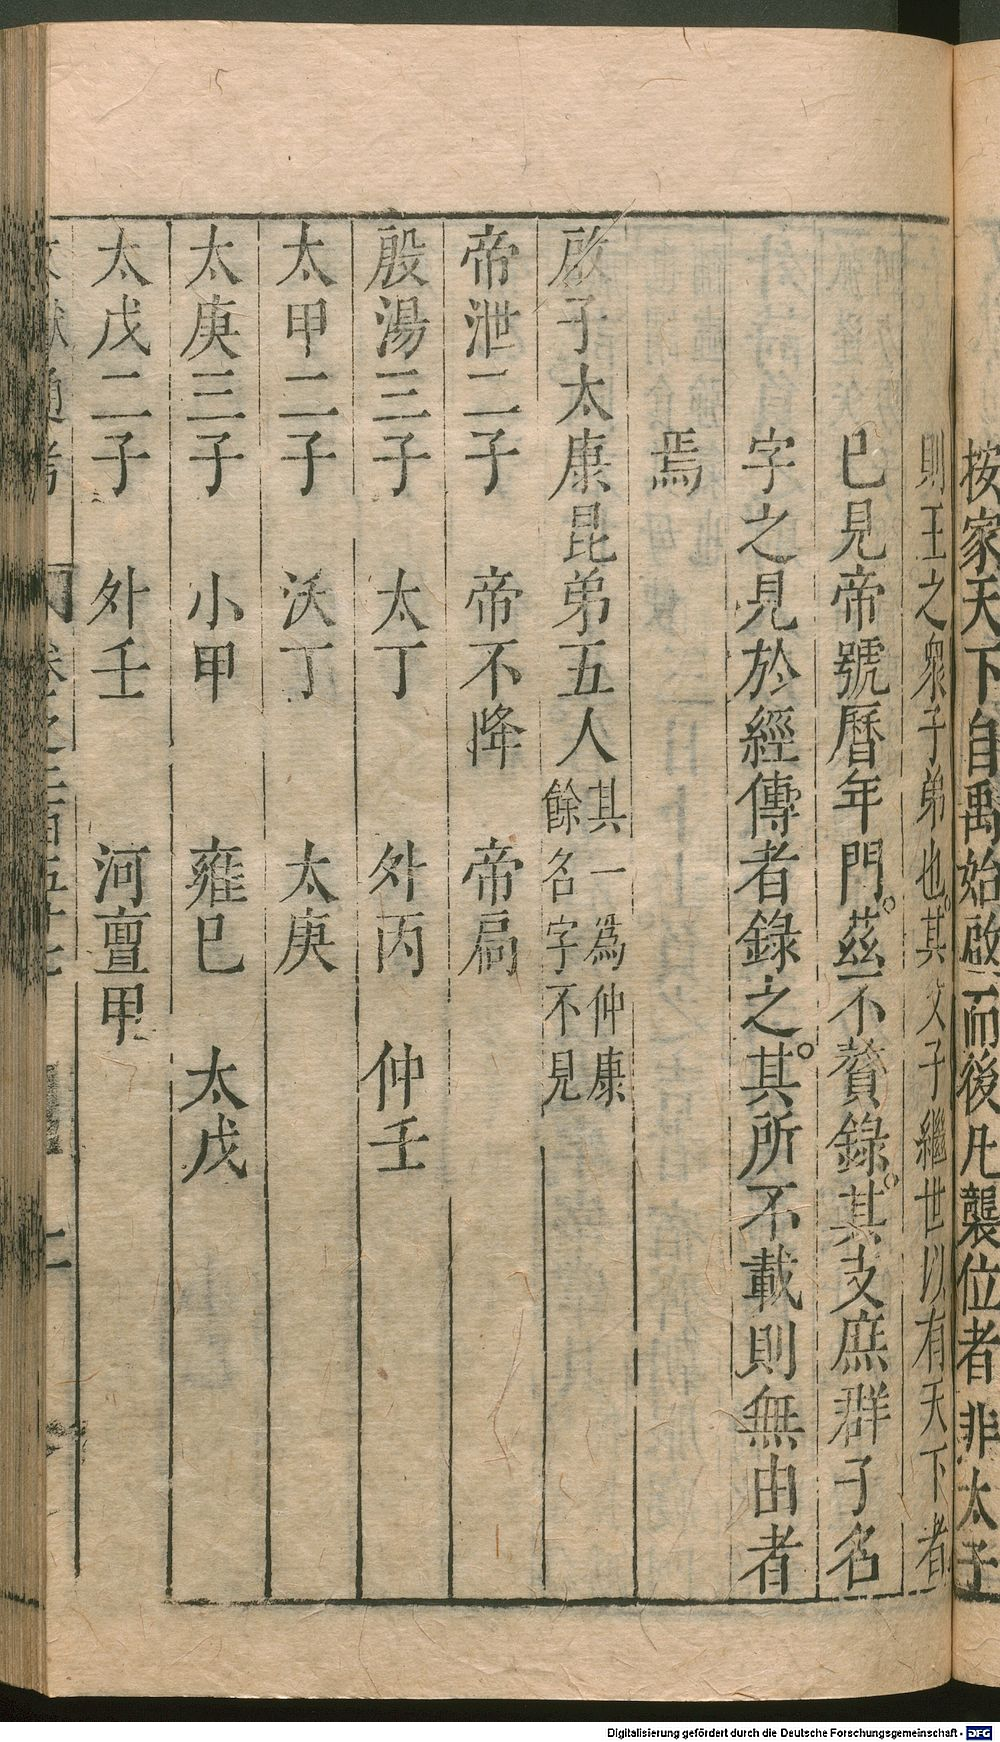 按家天下自禹始啟而後凡襲位者非太子
則王之衆子弟也其父子繼世以有天下者
巳見帝號曆年門茲不贅錄其支庶群子名
字之見於經傳者錄之其所不載則無由者
焉
啟子太康昆弟五人其一為仲康
餘名字不見
帝泄二子 帝不降 帝扃
殷湯三子 太丁 外丙 仲壬
太甲二子 沃丁 太庚
太庚三子 小甲 雍巳 太戊
太戊二子 外壬 河亶甲
文獻通考 卷之二百五十七 二
Digitalisierung gefördert durch die Deutsche Forschungsgemeinschaft - DFG